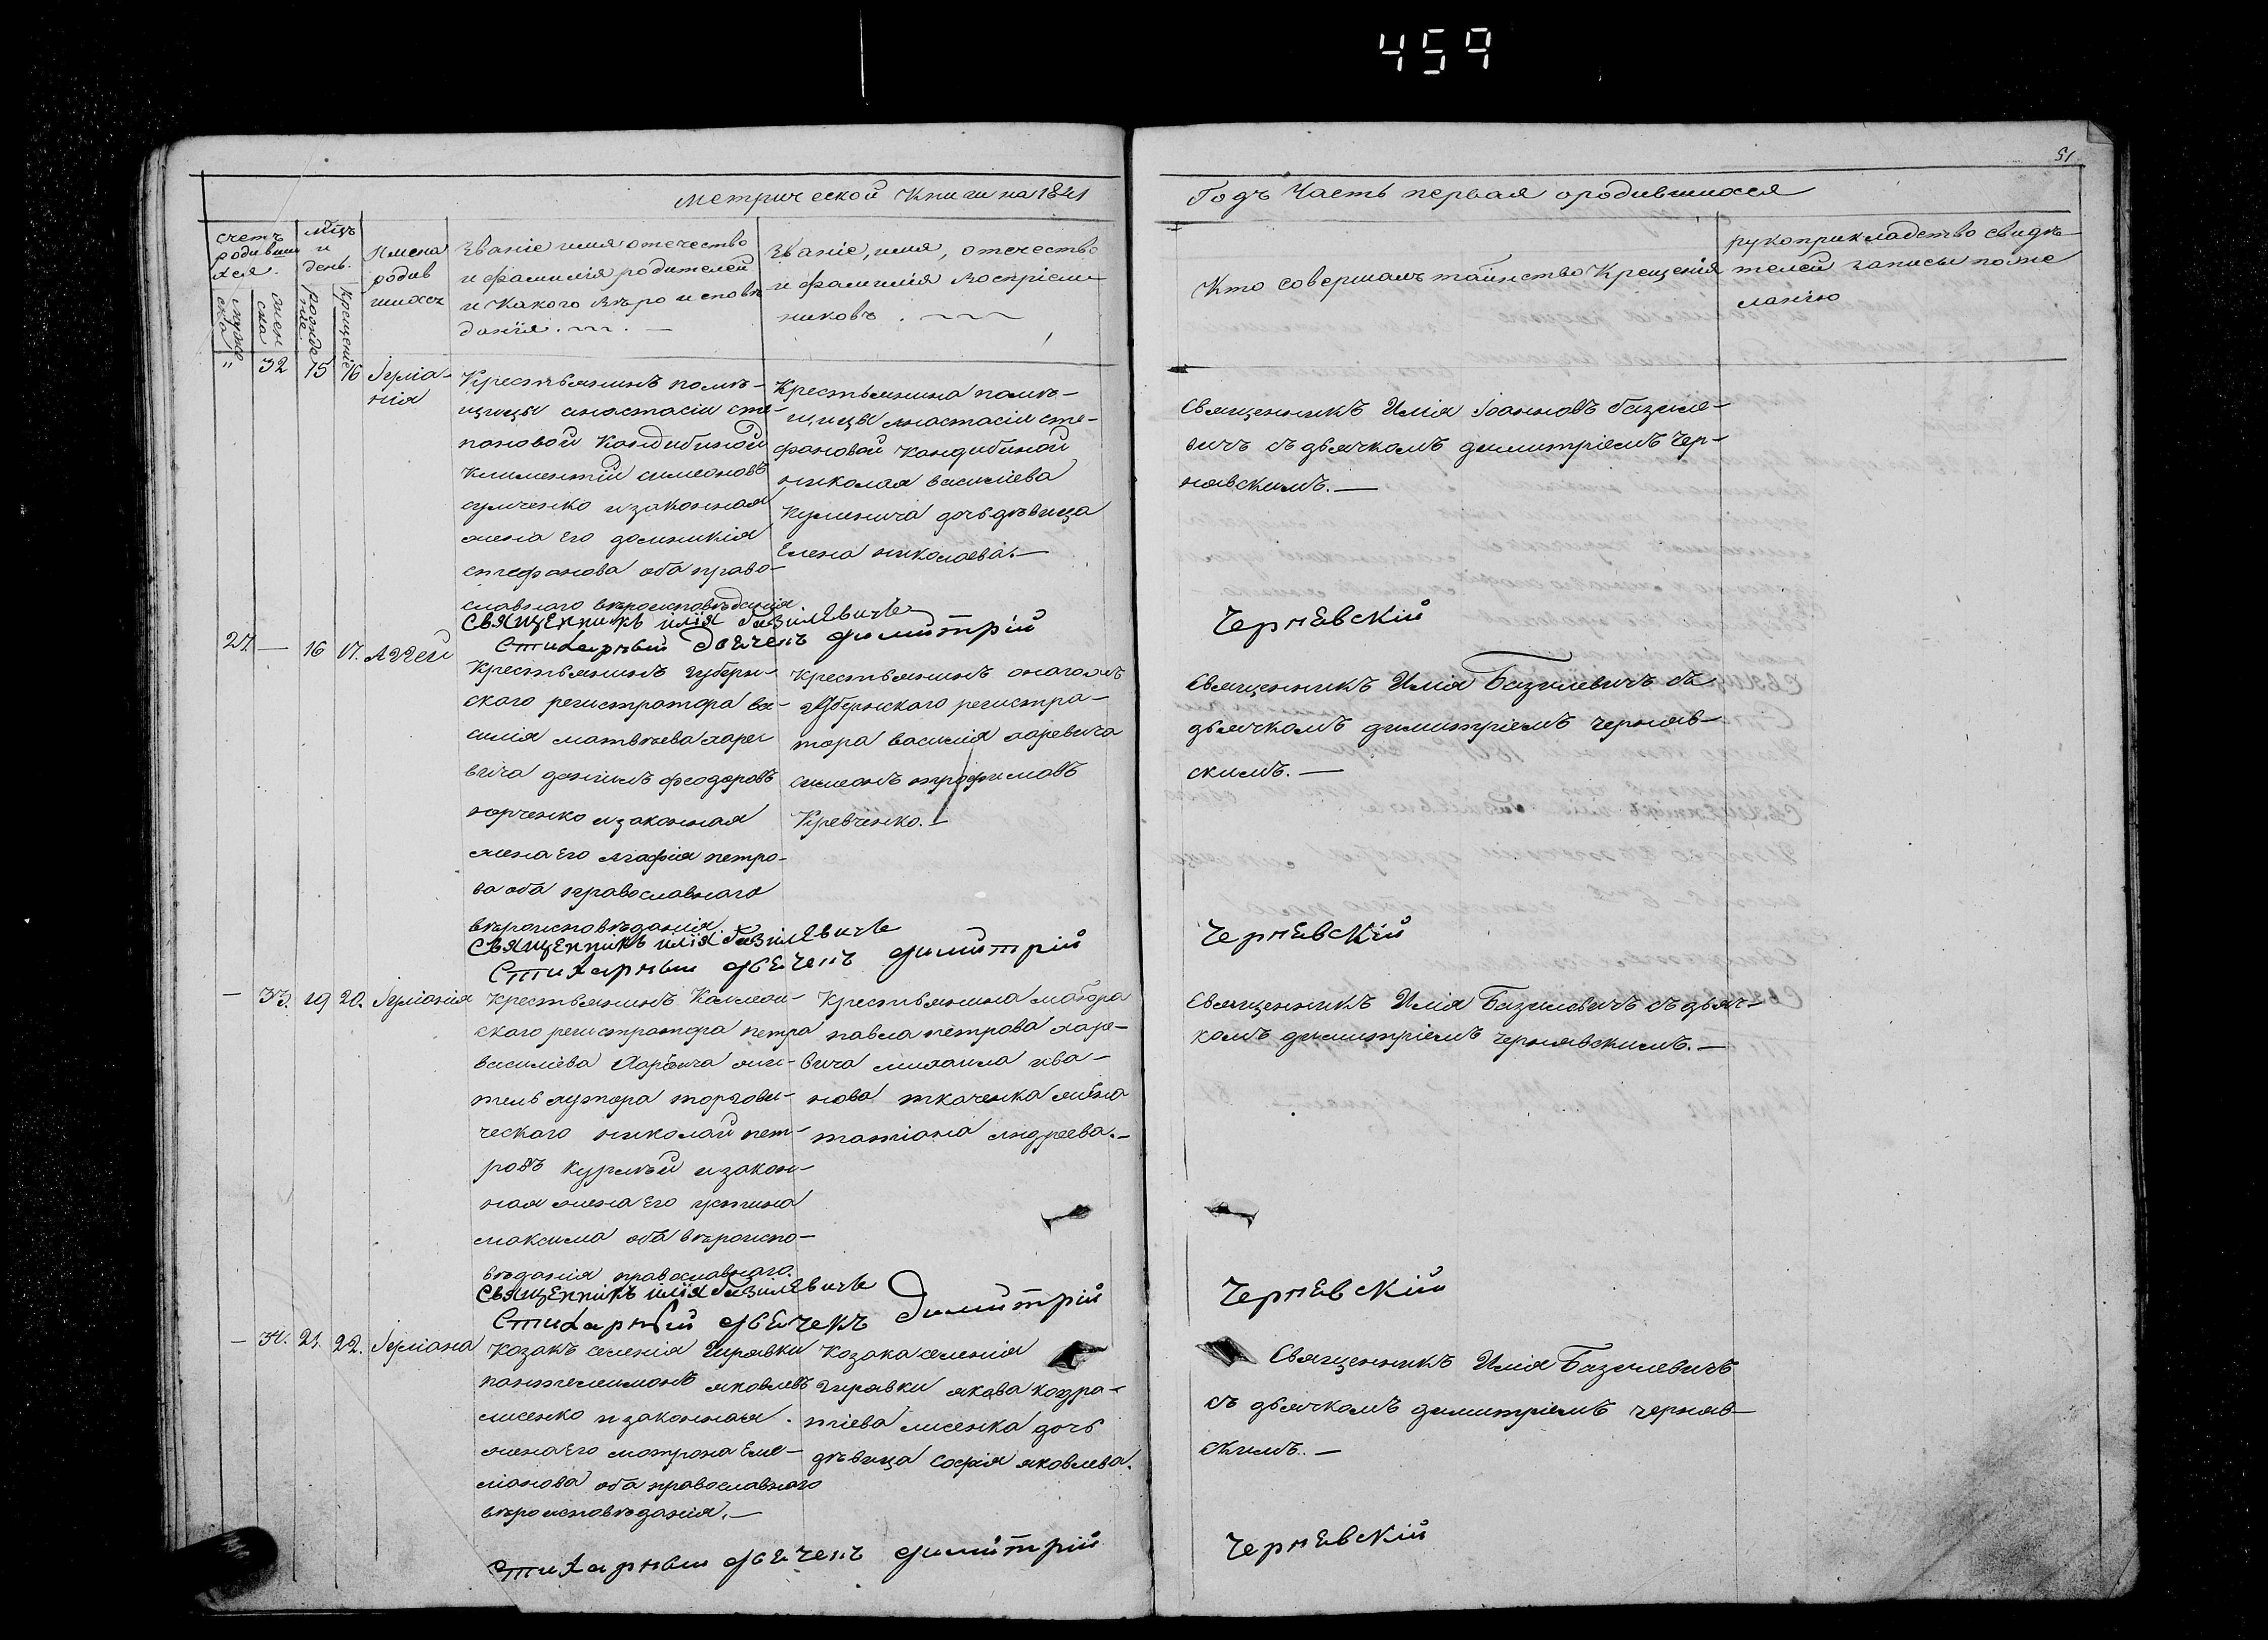 459
51
Метрической Книги на 1841
Годъ Часть первая ородившихся
счетъ родившихся.
мужеска
женска
мѣць и день.
рожденіе.
Крещеніе
Имена родившихся
Званіе имя отечество
и фамилія родителей
и Какого вѣроисповѣ
данія.
Званіе, имя, отечество
и фамилія Воспріем
никовъ.
Кто совершалъ таинство Крещенія
рукоприкладство свидѣ
телей записы по же
ланію
" 32 15 16 Іуліа-
нія
Крестьянинъ помѣ-
щицы анастасіи сте-
пановой Кондибиной
Климентій симеоновъ
законная
жена Его домникія
стефанова оба право-
славнаго вѣроисповѣданія.
Крестьянина помѣ-
щицы анастасіи сте-
фановой Кандибиной
николая василіева
дочь дѣвица
Елена николаева.—
Священникъ Илія Іоанновъ базиле-
вичъ съ дьячкомъ димитріемъ Чер-
нявскимъ.—
Священникъ илія базилевичь
Стихарный дьячекъ димитрій
Чернєвскій
27. — 16 17. Аггей
Крестьянинъ губерн-
ского регистратора ва-
силія матвѣева харе
вича даніилъ феодоровъ
законная
жена Его агафія петро-
ва оба православнаго
вѣроисповѣданія.
Крестьянинъ оногожъ
губернского регистра-
тора василія харевича
симеонъ трофимовъ
Кревченко.—
Священникъ Илія Базилевичъ съ
дьячкомъ димитріемъ черняв-
скимъ.—
Священникъ илія базилевичь
Стихарный дьячекъ димитрій
Чернєвскій
— 33. 19 20. Іуліанія
Крестьянинъ Коллеж-
ского регистратора петра
василіева Харевича жи-
тель хутора торгови-
ческого николай пет-
ровъ и закон-
ная жена Его устина
максима оба вѣроиспо-
вѣданія православнаго.
Крестьянина маіора
павла петрова харе-
вича михаила ива-
нова ткаченка жена
татіана андреева.—
Священникъ Илія Базилевичъ съ дьяч-
комъ димитріемъ чернявскимъ.—
Священникъ илія базилевичь
Стихарный дьячекъ димитрій
Чернєвскій
— 34. 21. 22. Іуліана
Козакъ селенія Гирявки
пантелеимонъ яковлевъ
лисенко и законная
жена Его матрона Еме-
ліанова оба православнаго
вѣроисповѣданія.—
Козака селенія
Гирявки якова кодра-
тіева лисенка дочь
дѣвица софія яковлева.
Священникъ Илія Базилевичъ
съ дьячкомъ димитріемъ черняв-
скимъ.—
Стихарный дьячекъ димитрій
Чернєвскій